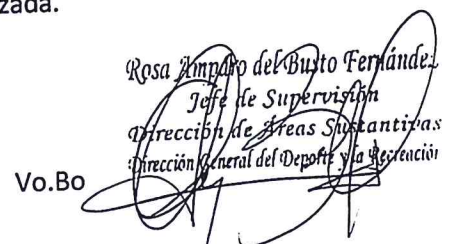 zada.
Rosa Amparo del Busto Fernández
Jefe de Supervisión
Dirección de Áreas Sustantivas
Dirección General del Deporte y la Recreación
Vo.Bo